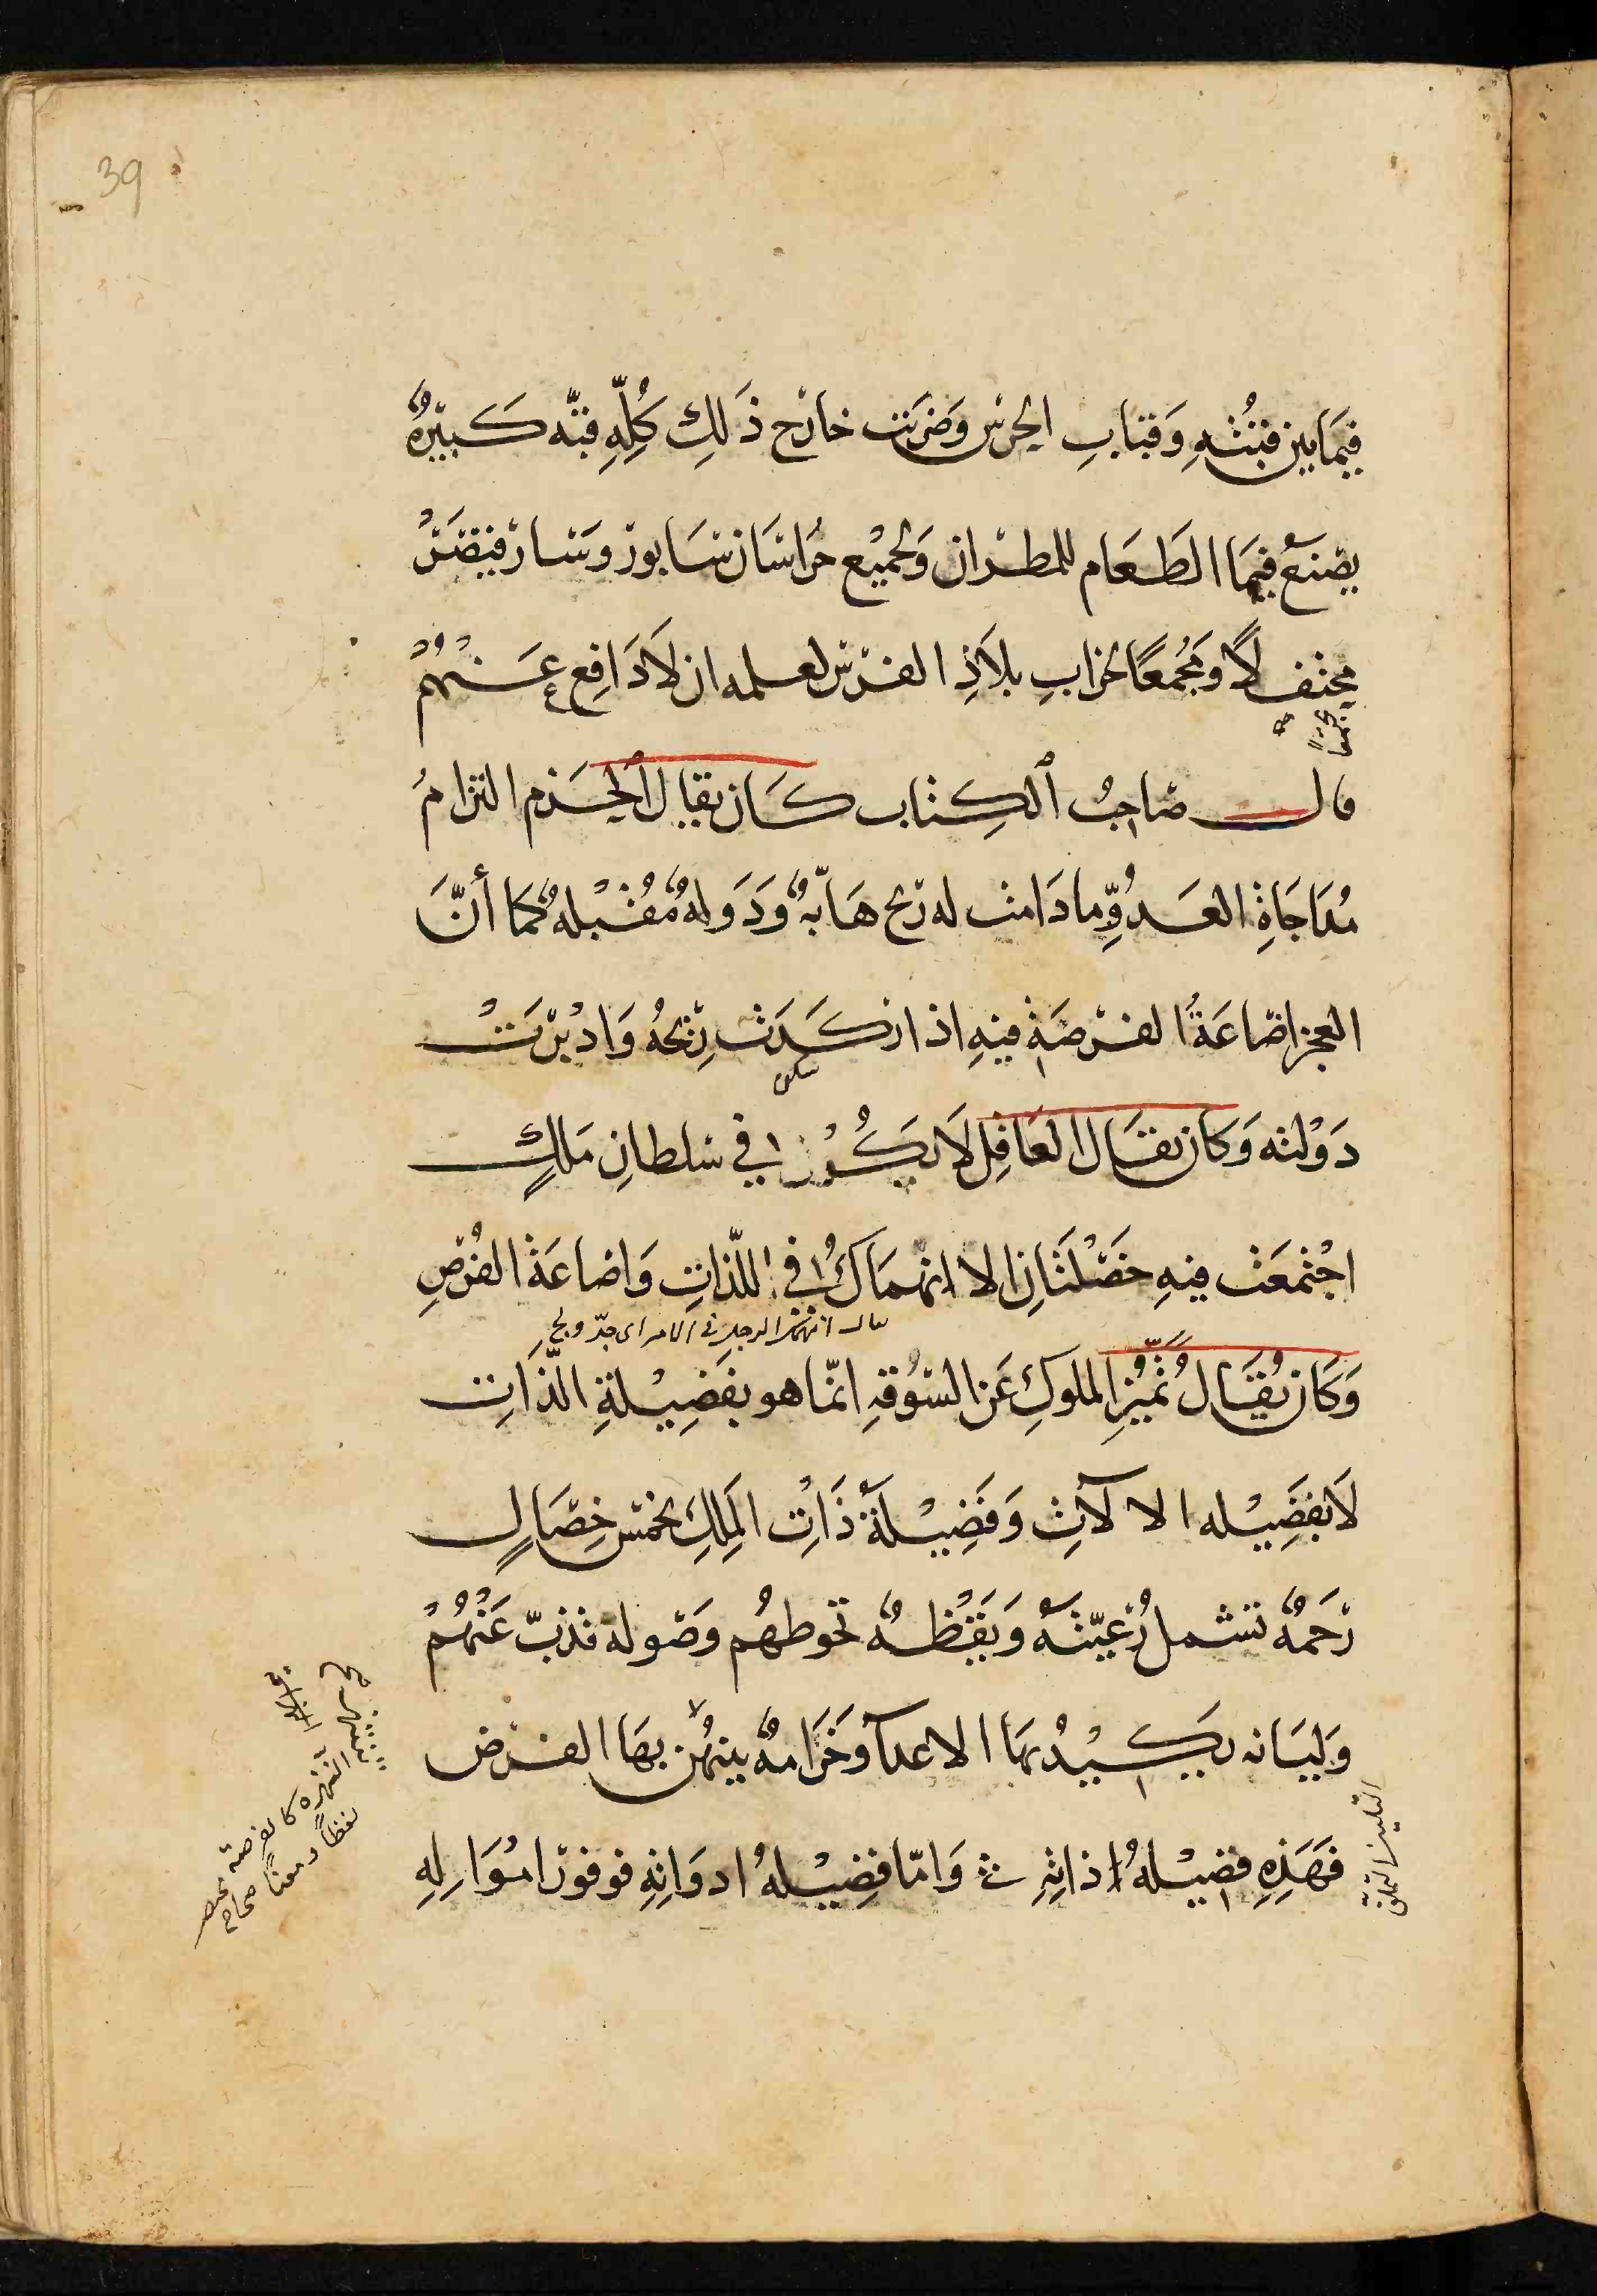 39
فيما بين قبته وقباب الحرس وضربت خارج ذلك كله قبة كبيرة
يصنع فيها الطعام للمطران ولجميع حراس سابور وسار قيصر
محتفلا ومجمعا لخراب بلاد الفرس لعلمه ان لا دافع عنهم
قال صاحب الكتاب كان يقال الحزم التزام
مداجاة العدو ما دامت له ريح هابة ودولة مقبلة كما أن
العجز اضاعة الفرصة فيه اذا ركدت ريحه وادبرت
دولته وكان يقال العاقل لا يكون في سلطان ملك
اجتمعت فيه خصلتان الانهماك في اللذات واضاعة الفرص
يقال انهمك الرجل في الامر اى جد ولج
وكان يقال تميز الملوك عن السوقة انما هو بفضيلة الذات
لا بفضيلة الالات وفضيلة ذات الملك بخمس خصال
رحمة تشمل رعيته ويقظة تحوطهم وصولة تذب عنهم
ولباقة يكيد بها الاعدآ وحزامة ينتهز بها الفرص
فهذه فضيلة ذاته واما فضيلة ادواته فوفور امواله
النهزة كالفرصة
لفظا ومعنا صحاح